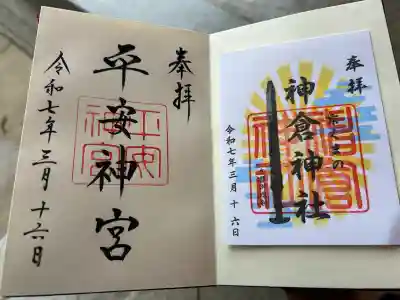 奉拝
平安神宮
令和七年三月十六日
奉拝
神倉神社
令和七年三月十六日